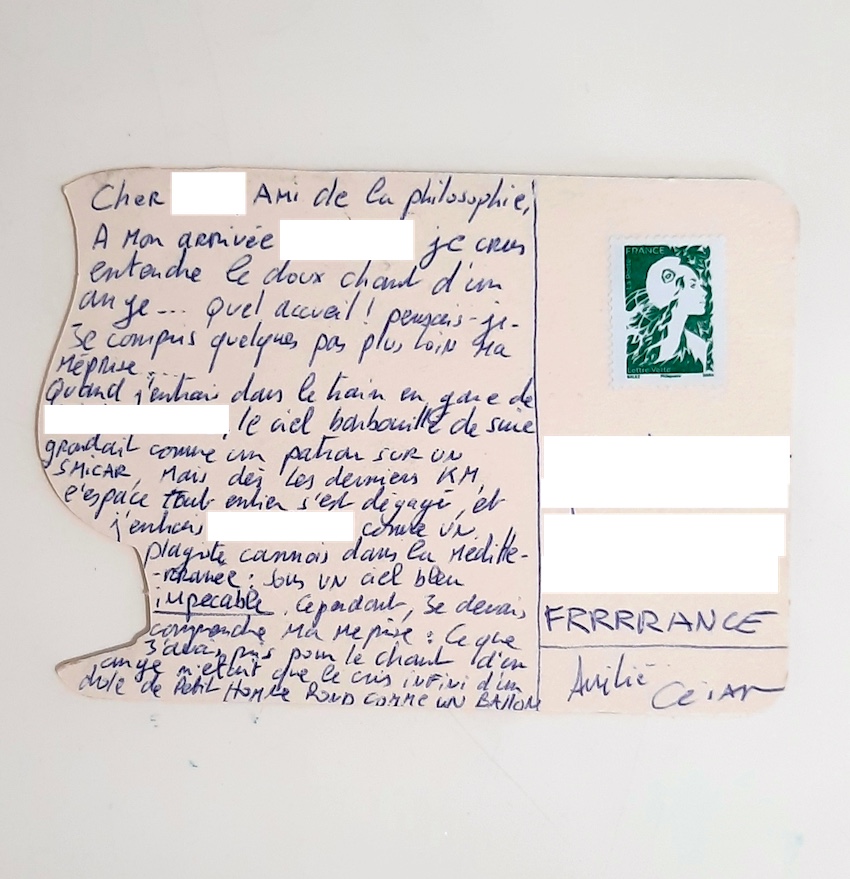 Cher Ami de la philosophie,
A Mon arrivée je crus
entendre le doux chant d'un
ange... Quel accueil! pensais-je.
Je compris quelques pas plus loin Ma
Méprise...
Quand j'entrai dans le train en gare de
, le ciel barbouillé de suie
grondait comme un patron SUR UN
SMICAR, Mais dès les derniers KM,
l'espace tout entier s'est dégagé, et
j'entrais comme UN
plagiste cannois dans la Médite-
-rranée: Sous UN ciel bleu
impecable. Cependant, Je devais
comprendre Ma Meprise: Ce que
J'avais pris pour le chant d'un
ange n'était que le cris iNFiNi d'un
drole de Petit HOMME ROND COMME UN BALLON
FRANCE
Lettre Verte
Philaposte
FRRRRANCE
Amitié
César